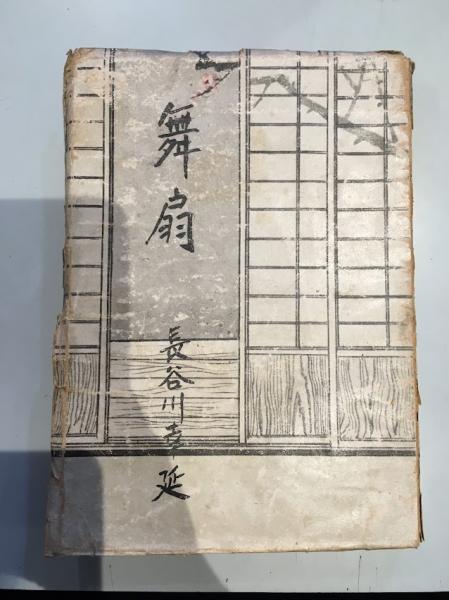 舞扇
長谷川幸延